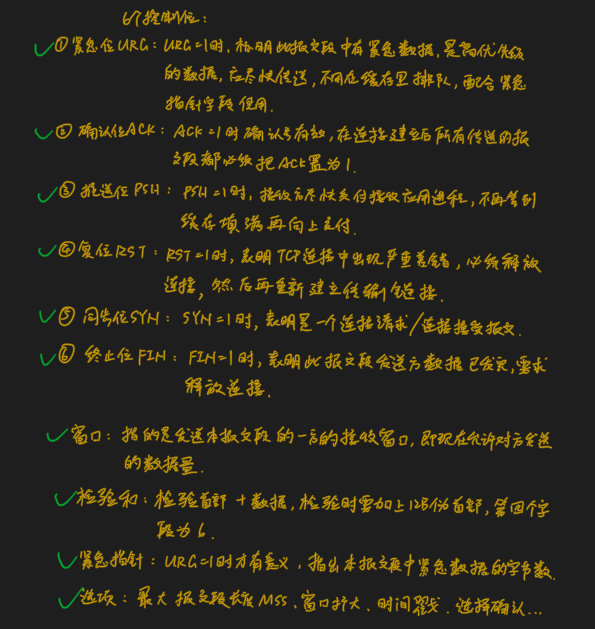 6个控制位:
①紧急位URG: URG=1时, 标明此报文段中有紧急数据, 是高优先级
的数据, 应尽快传送, 不用在缓存里排队, 配合紧急
指针字段使用.
②确认位ACK: ACK=1时确认号有效, 在连接建立后所有传送的报
文段都必须把ACK置为1.
③推送位PSH: PSH=1时, 接收方尽快交付接收应用进程, 不再等到
缓存填满再向上交付.
④复位RST: RST=1时, 表明TCP连接中出现严重差错, 必须释放
连接, 然后再重新建立传输连接.
⑤同步位SYN: SYN=1时, 表明是一个连接请求/连接接受报文.
⑥终止位FIN: FIN=1时, 表明此报文段发送方数据已发完, 要求
释放连接.
窗口: 指的是发送本报文段的一方的接收窗口, 即现在允许对方发送
的数据量.
检验和: 检验首部+数据, 检验时要加上12B伪首部, 第四个字
段为6.
紧急指针: URG=1时才有意义, 指出本报文段中紧急数据的字节数.
选项: 最大报文段长度MSS、窗口扩大、时间戳、选择确认...